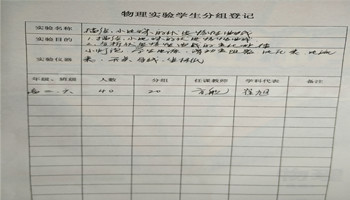 物理实验学生分组登记
实验名称 描绘小灯泡的伏安特性曲线
实验目的 1.描绘小灯泡的伏安特性曲线
2.分析伏安特性曲线的变化规律
实验仪器 小灯泡、学生电源、滑动变阻器、电压表、电流
表、开关、导线、坐标纸
年级、班级 人数 分组 任课教师 学科代表 备注
高一、六 40 20